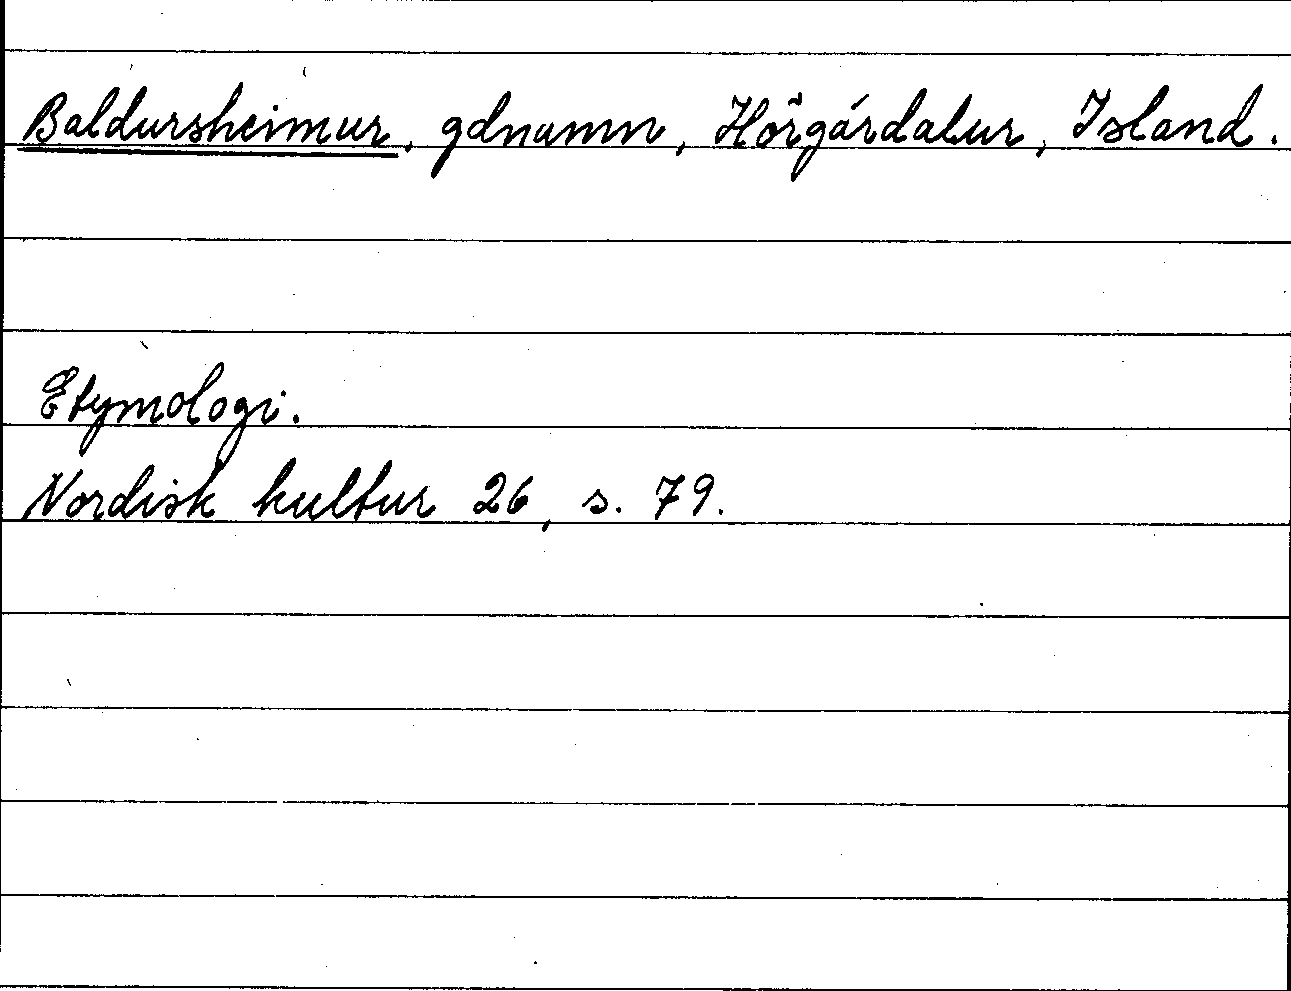 Baldursheimur, gdnamn, Hörgárdalur, Island.
Etymologi.
Nordisk kultur 26, s. 79.